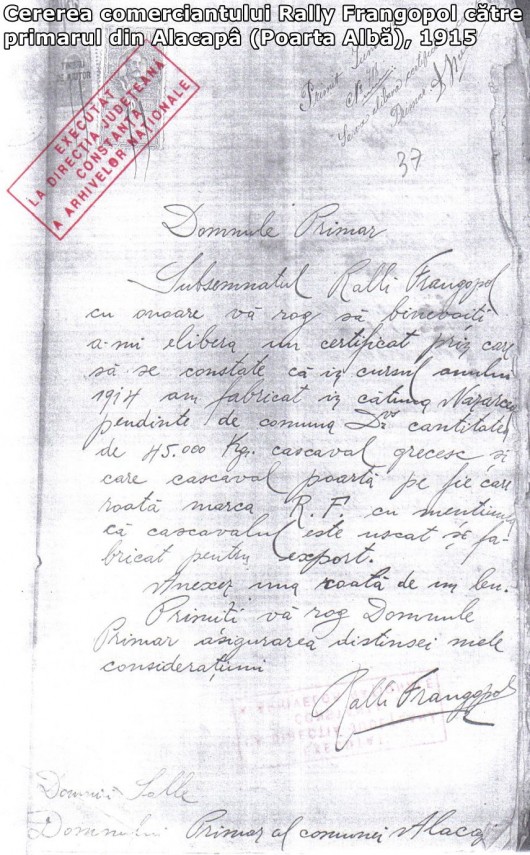 Cererea comerciantului Rally Frangopol către
primarul din Alacapâ (Poarta Albă), 1915
TIMBRU
DE AJUTOR
EXECUTAT
LA DIRECTIA JUDETEANA
CONSTANTA
A ARHIVELOR NATIONALE
Primit
No.
Se va elibera
Primar
37
Domnule Primar
Subsemnatul Ralli Frangopol
cu onoare vă rog să binevoiti
a-mi elibera un certificat prin care
să se constate că in cursul anului
1914 am fabricat in cătuna Nazarcea
pendinte de comuna Dvs cantitatea
de 45.000 Kg. cascaval grecesc și
care cascaval poartă pe fie care
roată marca R. F. cu mentiunea
că cascavalul este uscat și fa-
bricat pentru export.
Anexez una coală de un leu.
Primiti vă rog Domnule
Primar asigurarea distinsei mele
considerațiuni
Ralli Frangopol
Domniei Salle
Domnului Primar al comunei